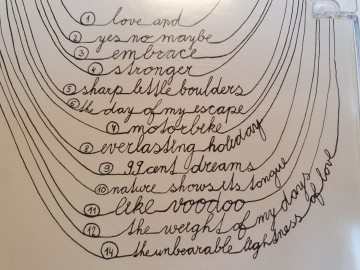 1 love and
2 yes no maybe
3 embrace
4 stronger
5 sharp little boulders
6 the day of my escape
7 motorbike
8 everlasting holiday
9 99 cent dreams
10 nature shows its tongue
11 like voodoo
12 the weight of my days
14 the unbearable lightness of love